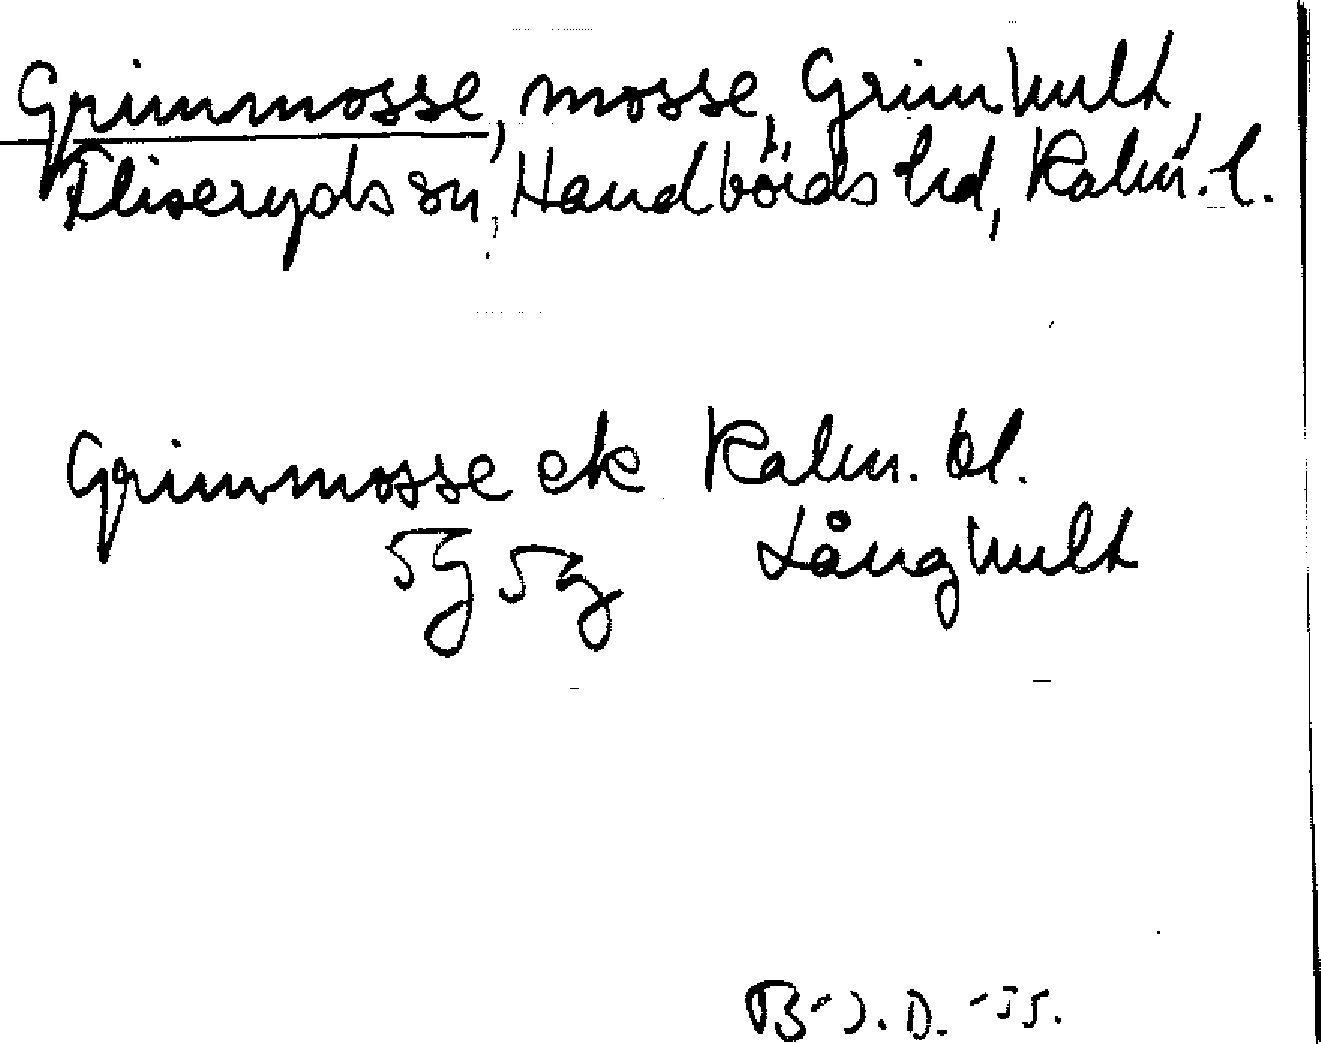 Grimmosse, mosse, Grimhult,
Fliseryds sn, Handbörds hd, Kalm. l.
Grimmosse ek Kalm. bl.
5g 5g Långhult
B-J. D. -55.